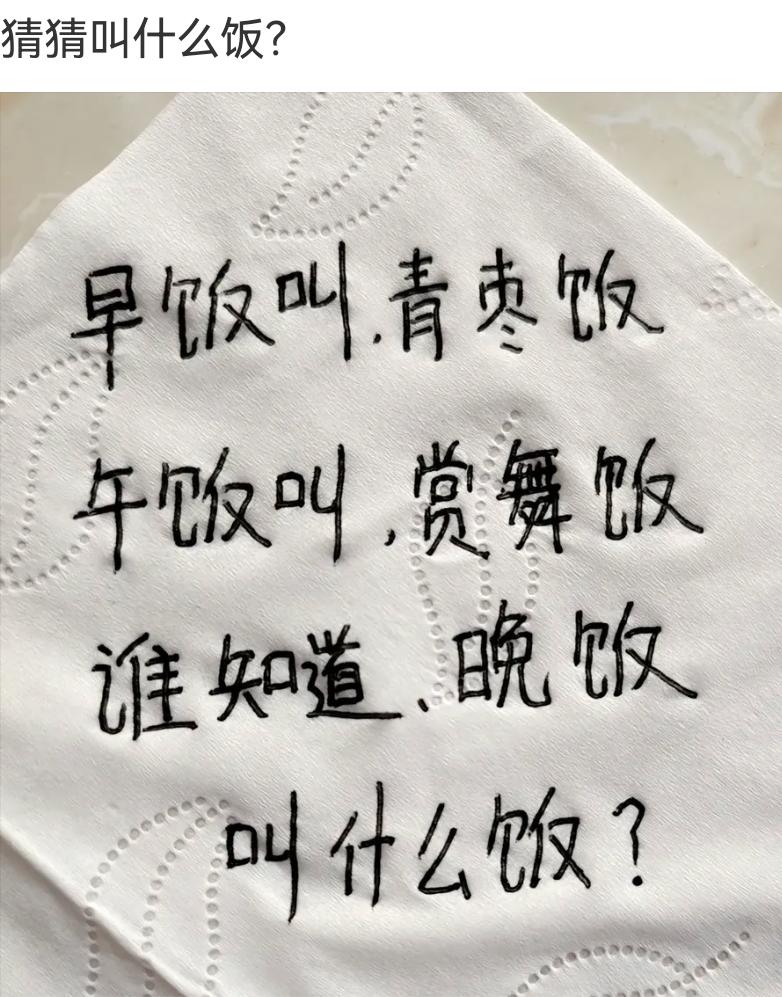 猜猜叫什么饭?
早饭叫.青枣饭
午饭叫,赏舞饭
谁知道、晚饭
叫什么饭?